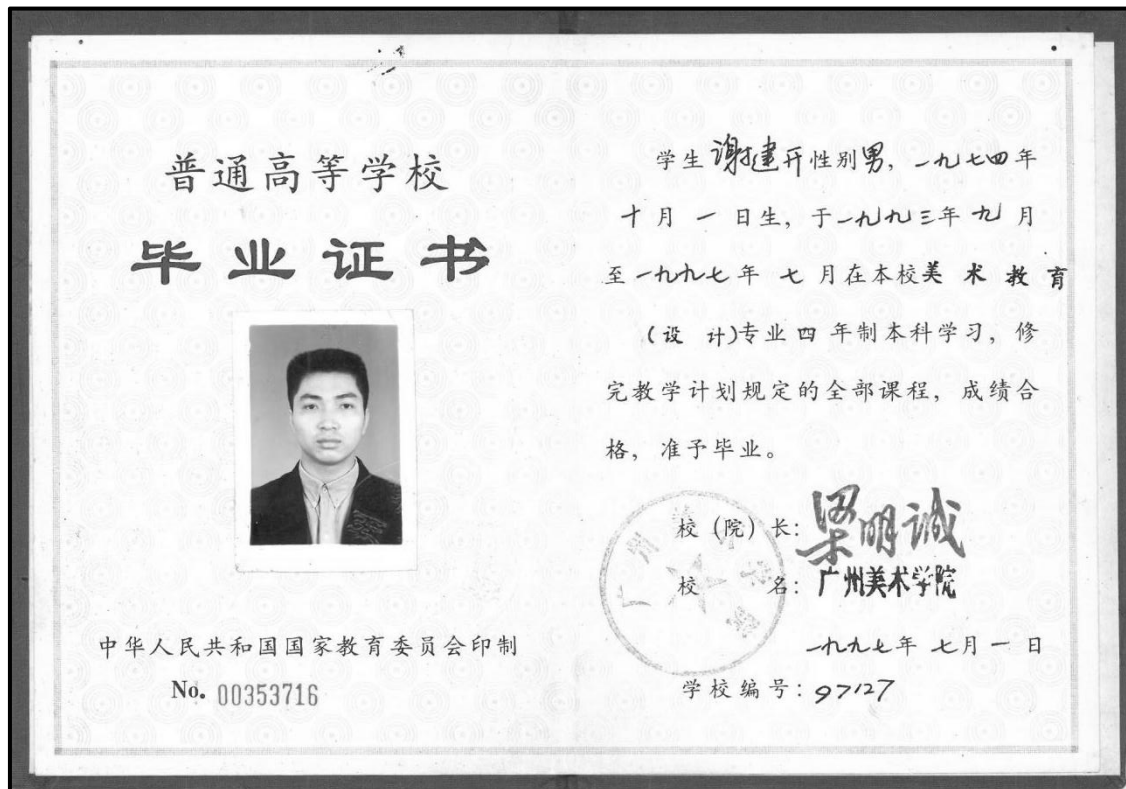 普通高等学校
毕业证书
中华人民共和国国家教育委员会印制
No. 00353716
学生谢建开性别男，一九七四年
十月一日生，于一九九三年九月
至一九九七年七月在本校美术教育
(设计)专业四年制本科学习，修
完教学计划规定的全部课程，成绩合
格，准予毕业。
校（院）长：梁明诚
校名：广州美术学院
一九九七年七月一日
学校编号：97127
广州美术学院